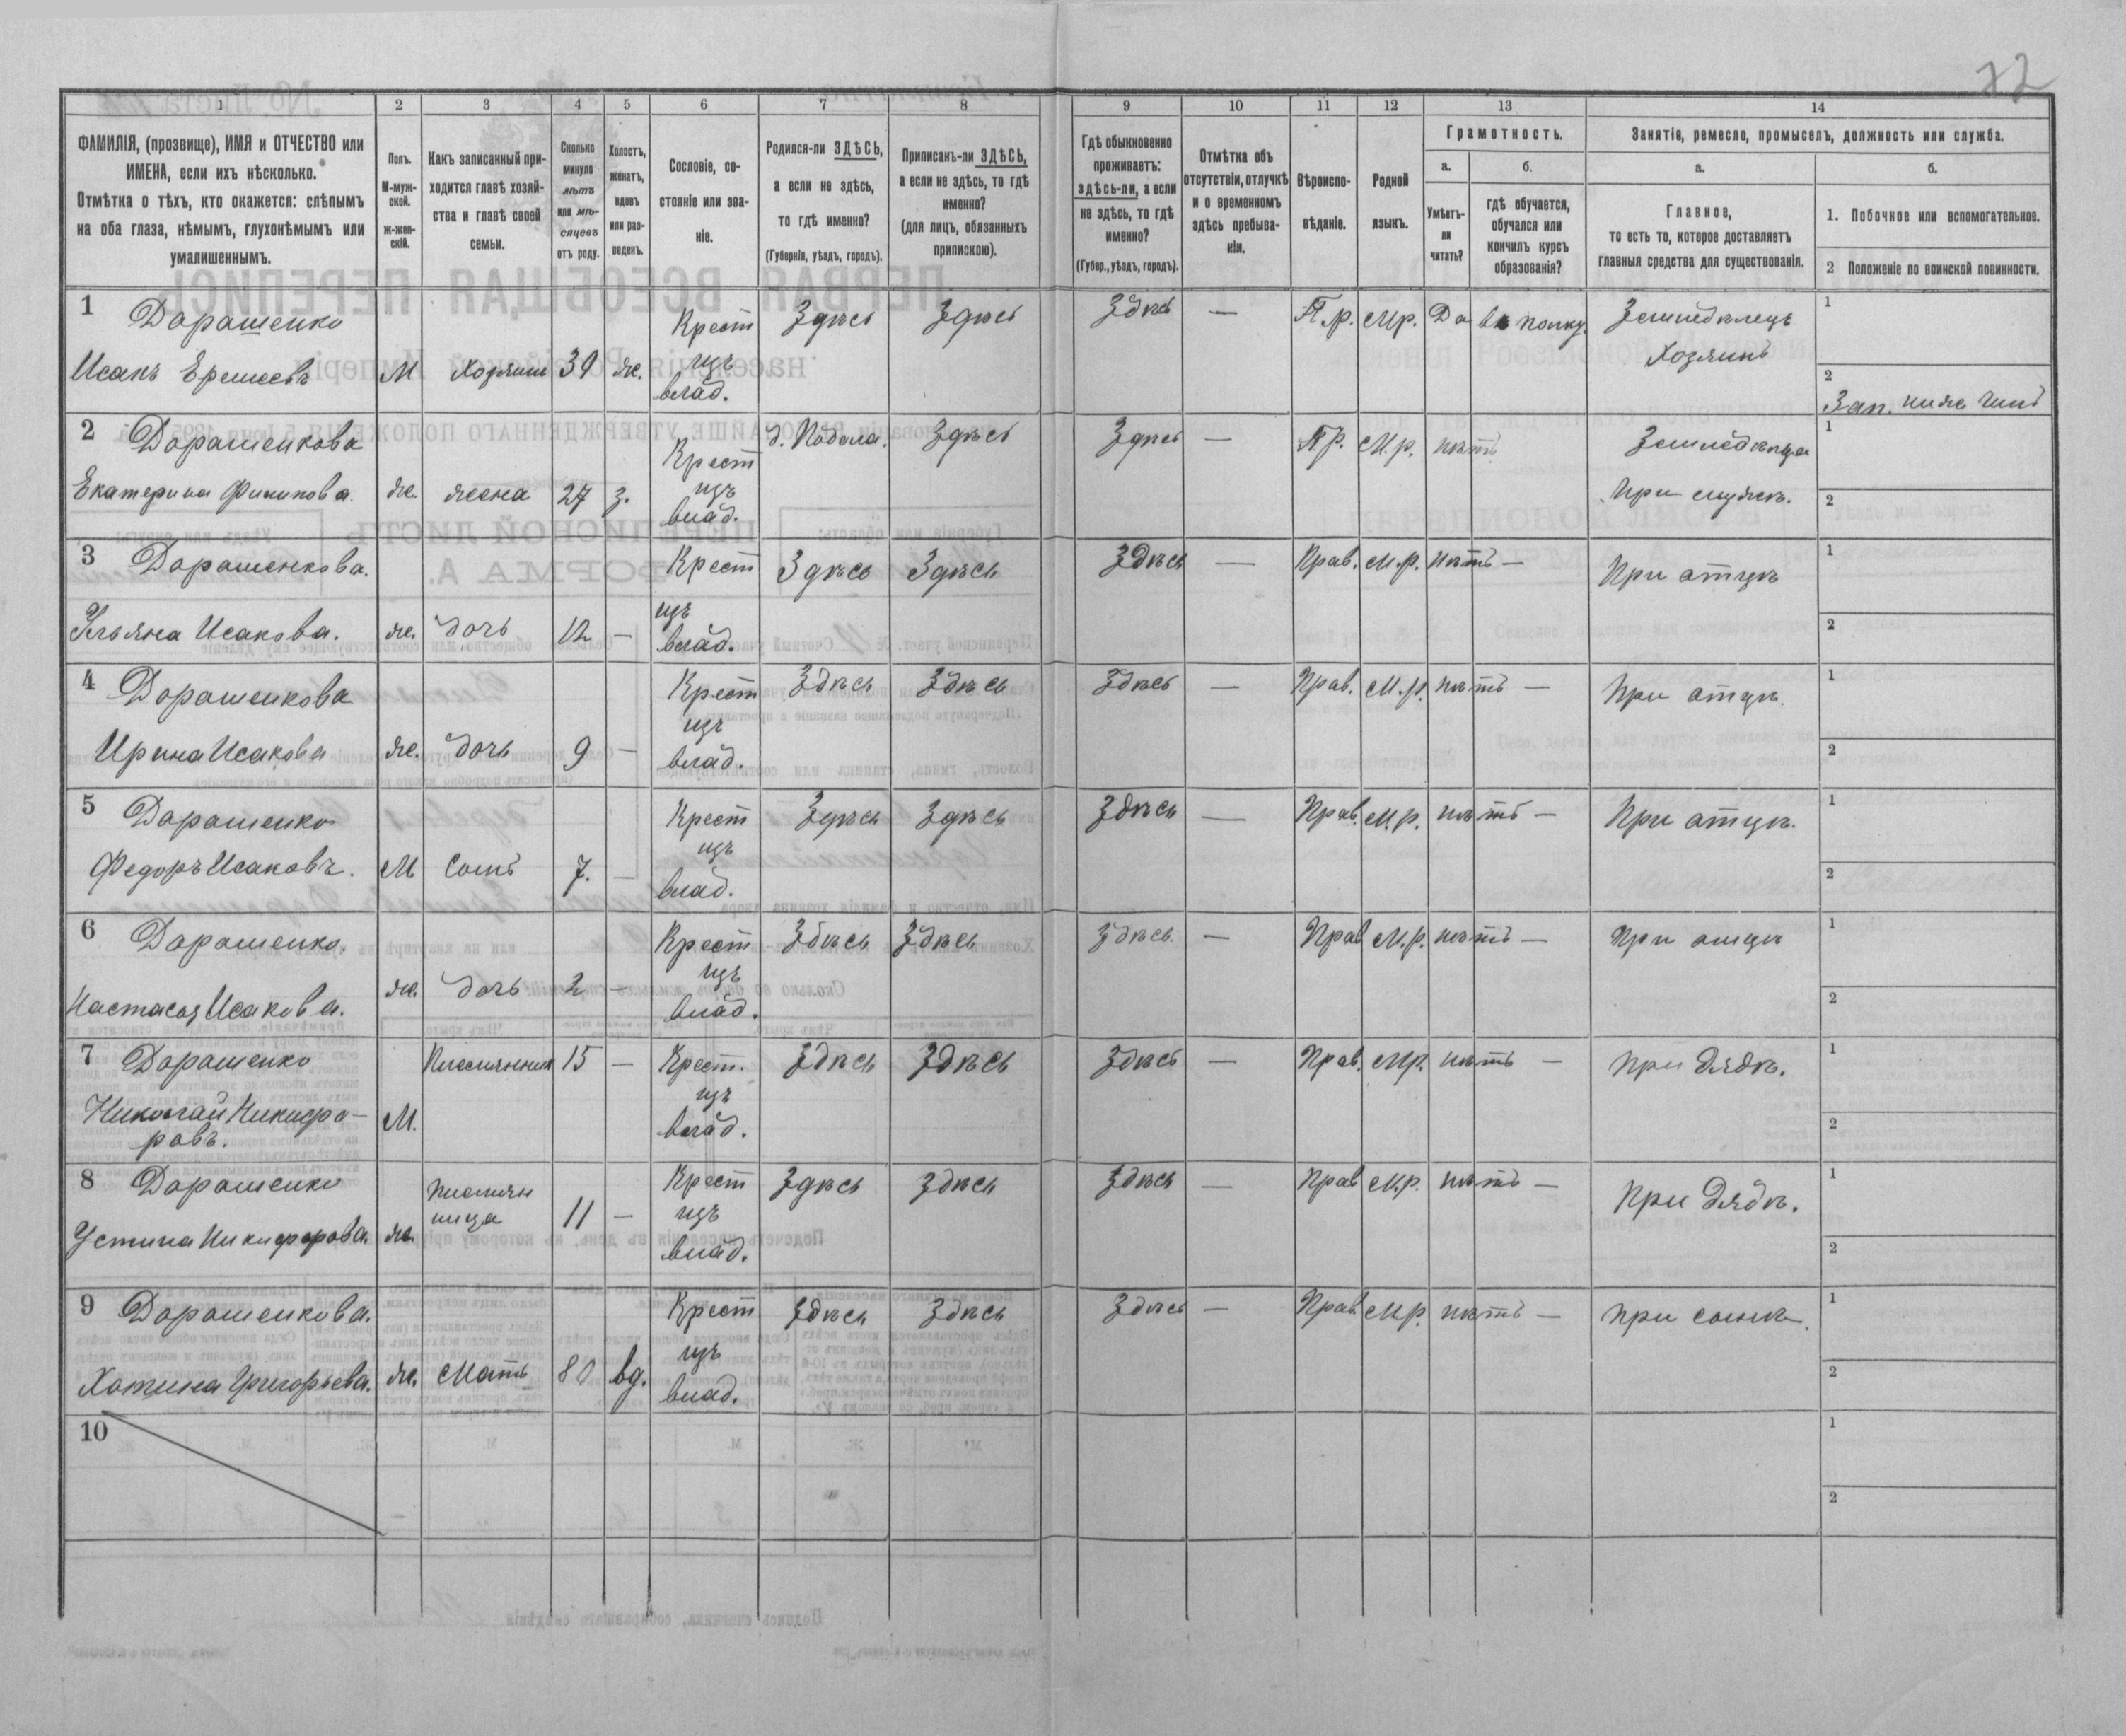 22
1 2 3 4 5 6 7 8 9 10 11 12 13 14
ФАМИЛІЯ, (прозвище), ИМЯ и ОТЧЕСТВО или
ИМЕНА, если ихъ нѣсколько.
Отмѣтка о тѣхъ, кто окажется: слѣпымъ
на оба глаза, нѣмымъ, глухонѣмымъ или
умалишеннымъ.
Полъ.
М-муж-
ской.
Ж-жен-
скій.
Какъ записанный при-
ходится главѣ хозяй-
ства и главѣ своей
семьи.
Сколько
минуло
лѣтъ
или мѣ-
сяцевъ
отъ роду.
Холостъ,
женатъ,
вдовъ
или раз-
веденъ.
Сословіе, со-
стояніе или зва-
ніе.
Родился-ли ЗДѢСЬ,
а если не здѣсь,
то гдѣ именно?
(Губернія, уѣздъ, городъ).
Приписанъ-ли ЗДѢСЬ,
а если не здѣсь, то гдѣ
именно?
(для лицъ, обязанныхъ
припискою).
Гдѣ обыкновенно
проживаетъ:
здѣсь-ли, а если
не здѣсь, то гдѣ
именно?
(Губер., уѣздъ, городъ).
Отмѣтка объ
отсутствіи, отлучкѣ
и о временномъ
здѣсь пребыва-
ніи.
Вѣроиспо-
вѣданіе.
Родной
языкъ.
Грамотность.
а.
Умѣетъ-
ли
читать?
б.
гдѣ обучается,
обучался или
кончилъ курсъ
образованія?
Занятіе, ремесло, промыселъ, должность или служба.
а.
Главное,
то есть то, которое доставляетъ
главныя средства для существованія.
б.
1. Побочное или вспомогательное.
2 Положеніе по воинской повинности.
1 Дорошенко Крест Здѣсь Здѣсь Здѣсь — Пр. Мр. Да въ полку. Земледѣлецъ 1
Исакъ Еремеевъ М Хозяинъ 39 ж. изъ Хозяинъ 2
влад. Зап. ниж. чинъ
2 Дорошенкова Крест д. Подола. Здѣсь Здѣсь — Пр. М.р. нѣтъ Земледѣлца 1
Екатерина Филипова. ж. жена 27 з. изъ при мужѣ. 2
влад.
3 Дорошенкова. Крест Здѣсь Здѣсь Здѣсь — Прав. М.р. нѣтъ — При отцѣ 1
Ульяна Исакова. ж. дочь 12 — изъ 2
влад.
4 Дорошенкова Крест Здѣсь Здѣсь Здѣсь — Прав. М.р. нѣтъ — При отцѣ. 1
Ирина Исакова ж. дочь 9 — изъ 2
влад.
5 Дорошенко Крест Здѣсь Здѣсь Здѣсь — Прав. М.р. нѣтъ — При отцѣ. 1
Федоръ Исаковъ. М Сынъ 7. — изъ 2
влад.
6 Дорошенко. Крест Здѣсь Здѣсь Здѣсь. — Прав М.р. нѣтъ — При отцѣ 1
Настасья Исакова. ж. дочь 2 — изъ 2
влад.
7 Дорошенко Племянникъ 15 — Крест. Здѣсь Здѣсь Здѣсь — Прав. Мр. нѣтъ — при дядѣ. 1
Николай Никифо- М. изъ 2
ровъ. влад.
8 Дорошенко Племян Крест Здѣсь Здѣсь Здѣсь — Прав М.р. нѣтъ — При дядѣ. 1
ница 11 — изъ
Устина Никифорова. ж. влад. 2
9 Дорошенкова. Крест Здѣсь Здѣсь Здѣсь — Прав М.р. нѣтъ — при сынѣ. 1
Григорьева. ж. Мать 80 вд. изъ 2
влад.
10 1
2